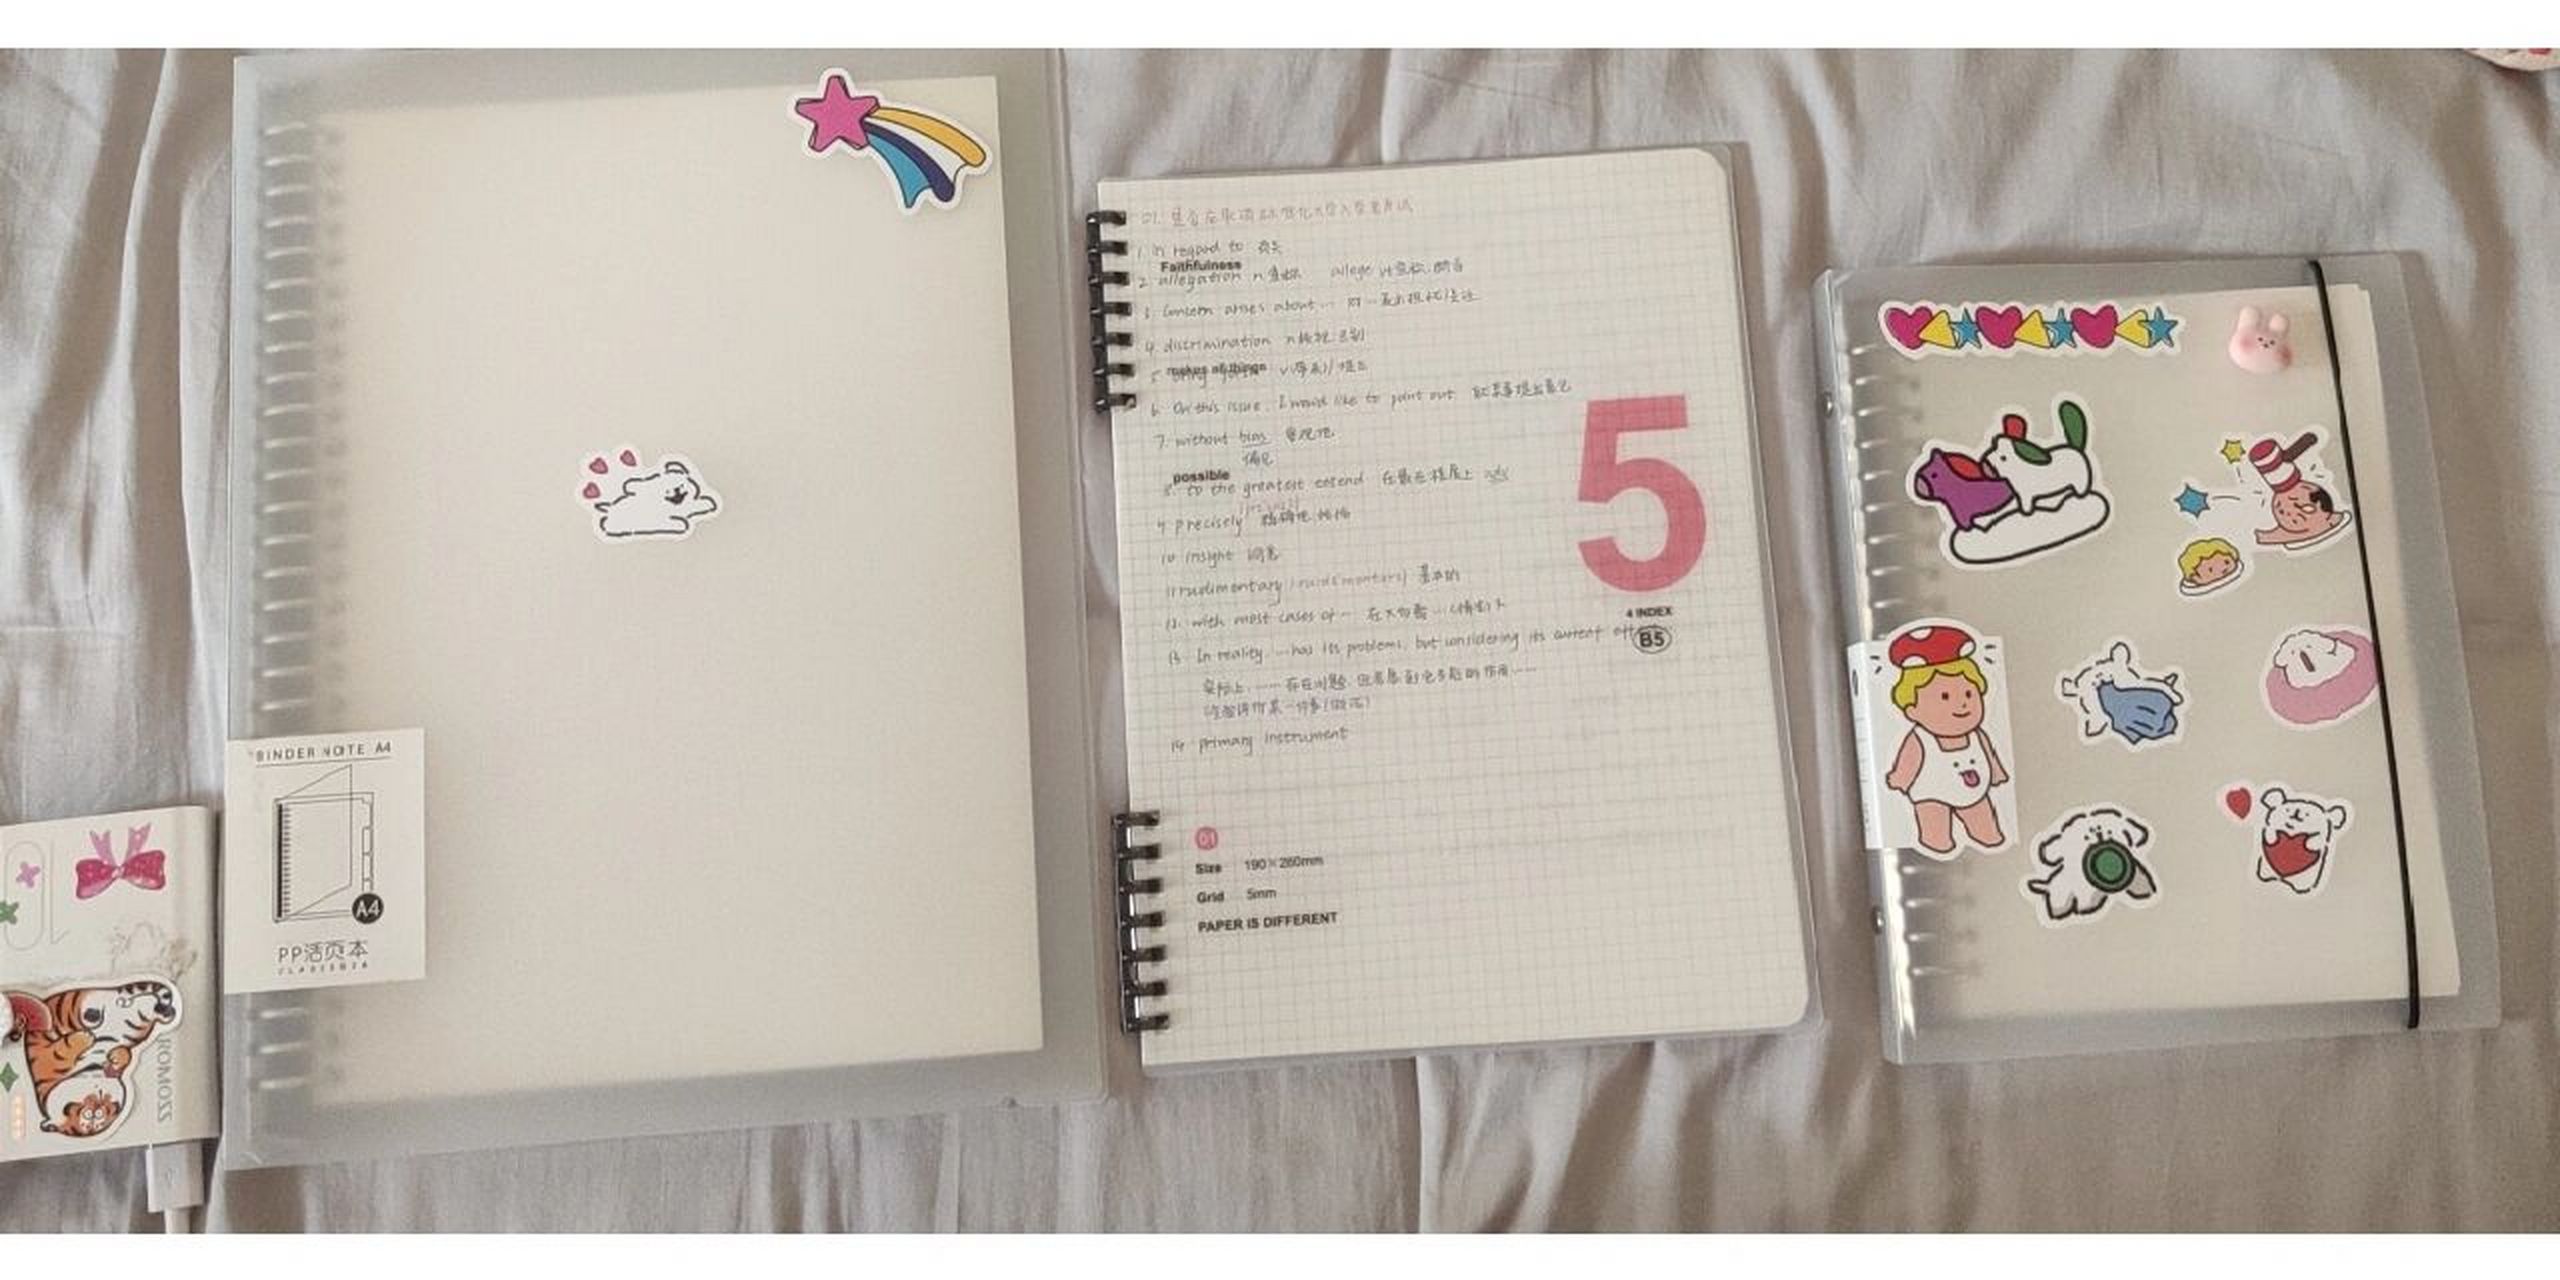 BINDER NOTE A4
A4
PP活页本
ROMOSS
1. in regard to 有关
Faithfulness
2. allegation n 宣称 allege vt 宣称, 断言
3. Concern arises about… 对…表示担忧/关注
4. discrimination n 歧视 区别
makes all things
5. bring forth
6. On this issue, I would like to point out 就某事提出意见
7. without bias 客观地
偏见
possible
8. to the greatest extend 在最大程度上
9. precisely 精确地 恰恰
10. insight 洞见
11. rudimentary 基本的
12. with most cases of… 在大部分…(情形)下
13. In reality, …has its problems, but considering its current
实际上, ……存在问题, 但考虑到它当前的作用……
14. primary instrument
5
4 INDEX
B5
01
Size 190×260mm
Grid 5mm
PAPER IS DIFFERENT